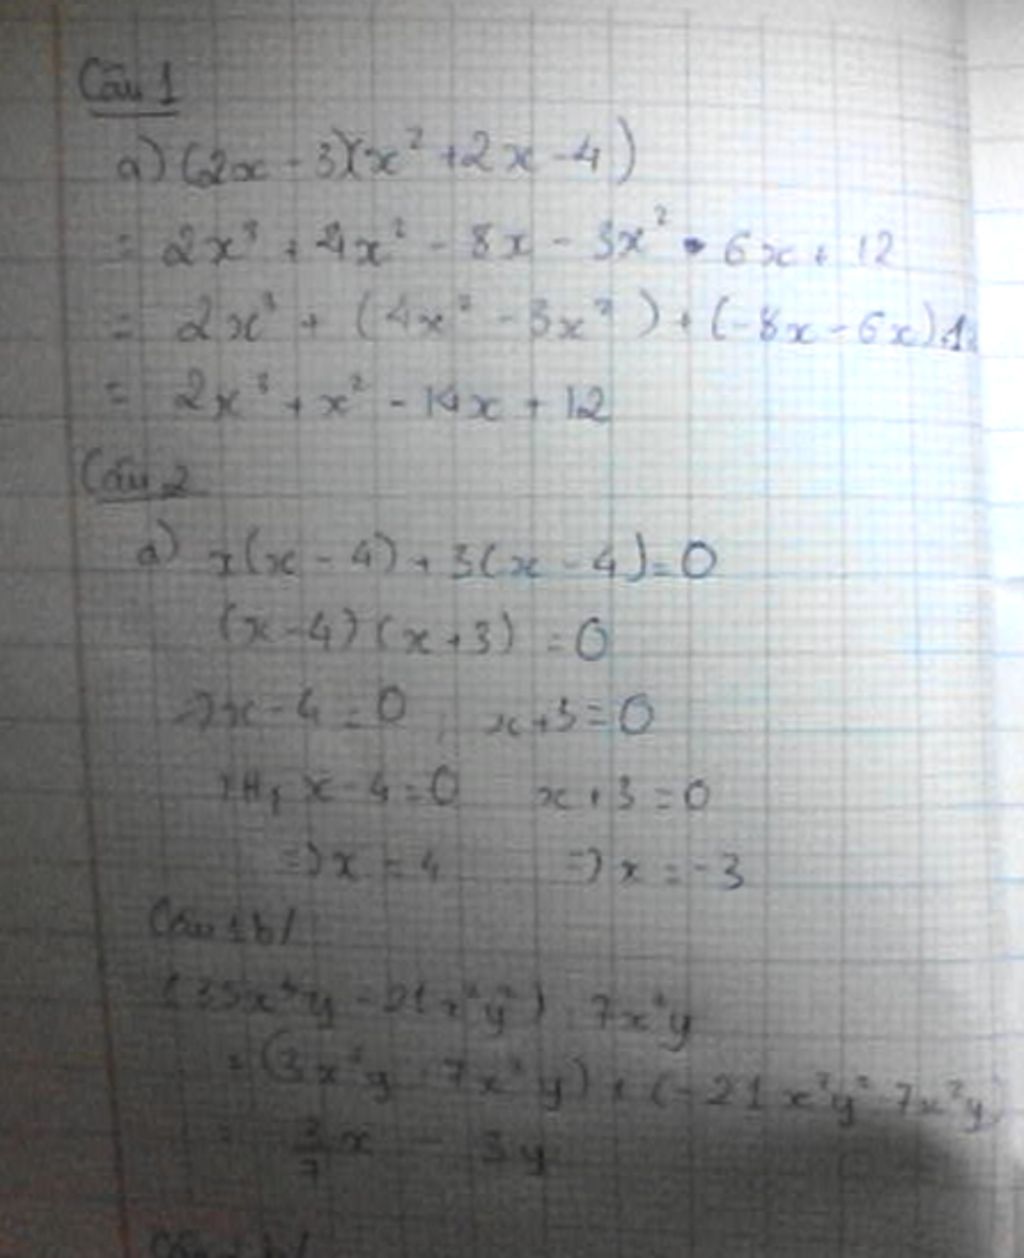 Câu 1
a) (2x - 3)(x² + 2x - 4)
= 2x³ + 4x² - 8x - 3x² - 6x + 12
= 2x³ + (4x² - 3x²) + (-8x - 6x) + 1
= 2x³ + x² - 14x + 12
Câu 2
a) x(x - 4) + 3(x - 4) = 0
(x - 4)(x + 3) = 0
=> x - 4 = 0, x + 3 = 0
TH, x - 4 = 0 x + 3 = 0
=> x = 4 => x = -3
Câu 1b/
(35x⁴y - 21x²y²) : 7x²y
= (3x³y : 7x²y) + (-21x²y² : 7x²y)
= 3/7x - 3y